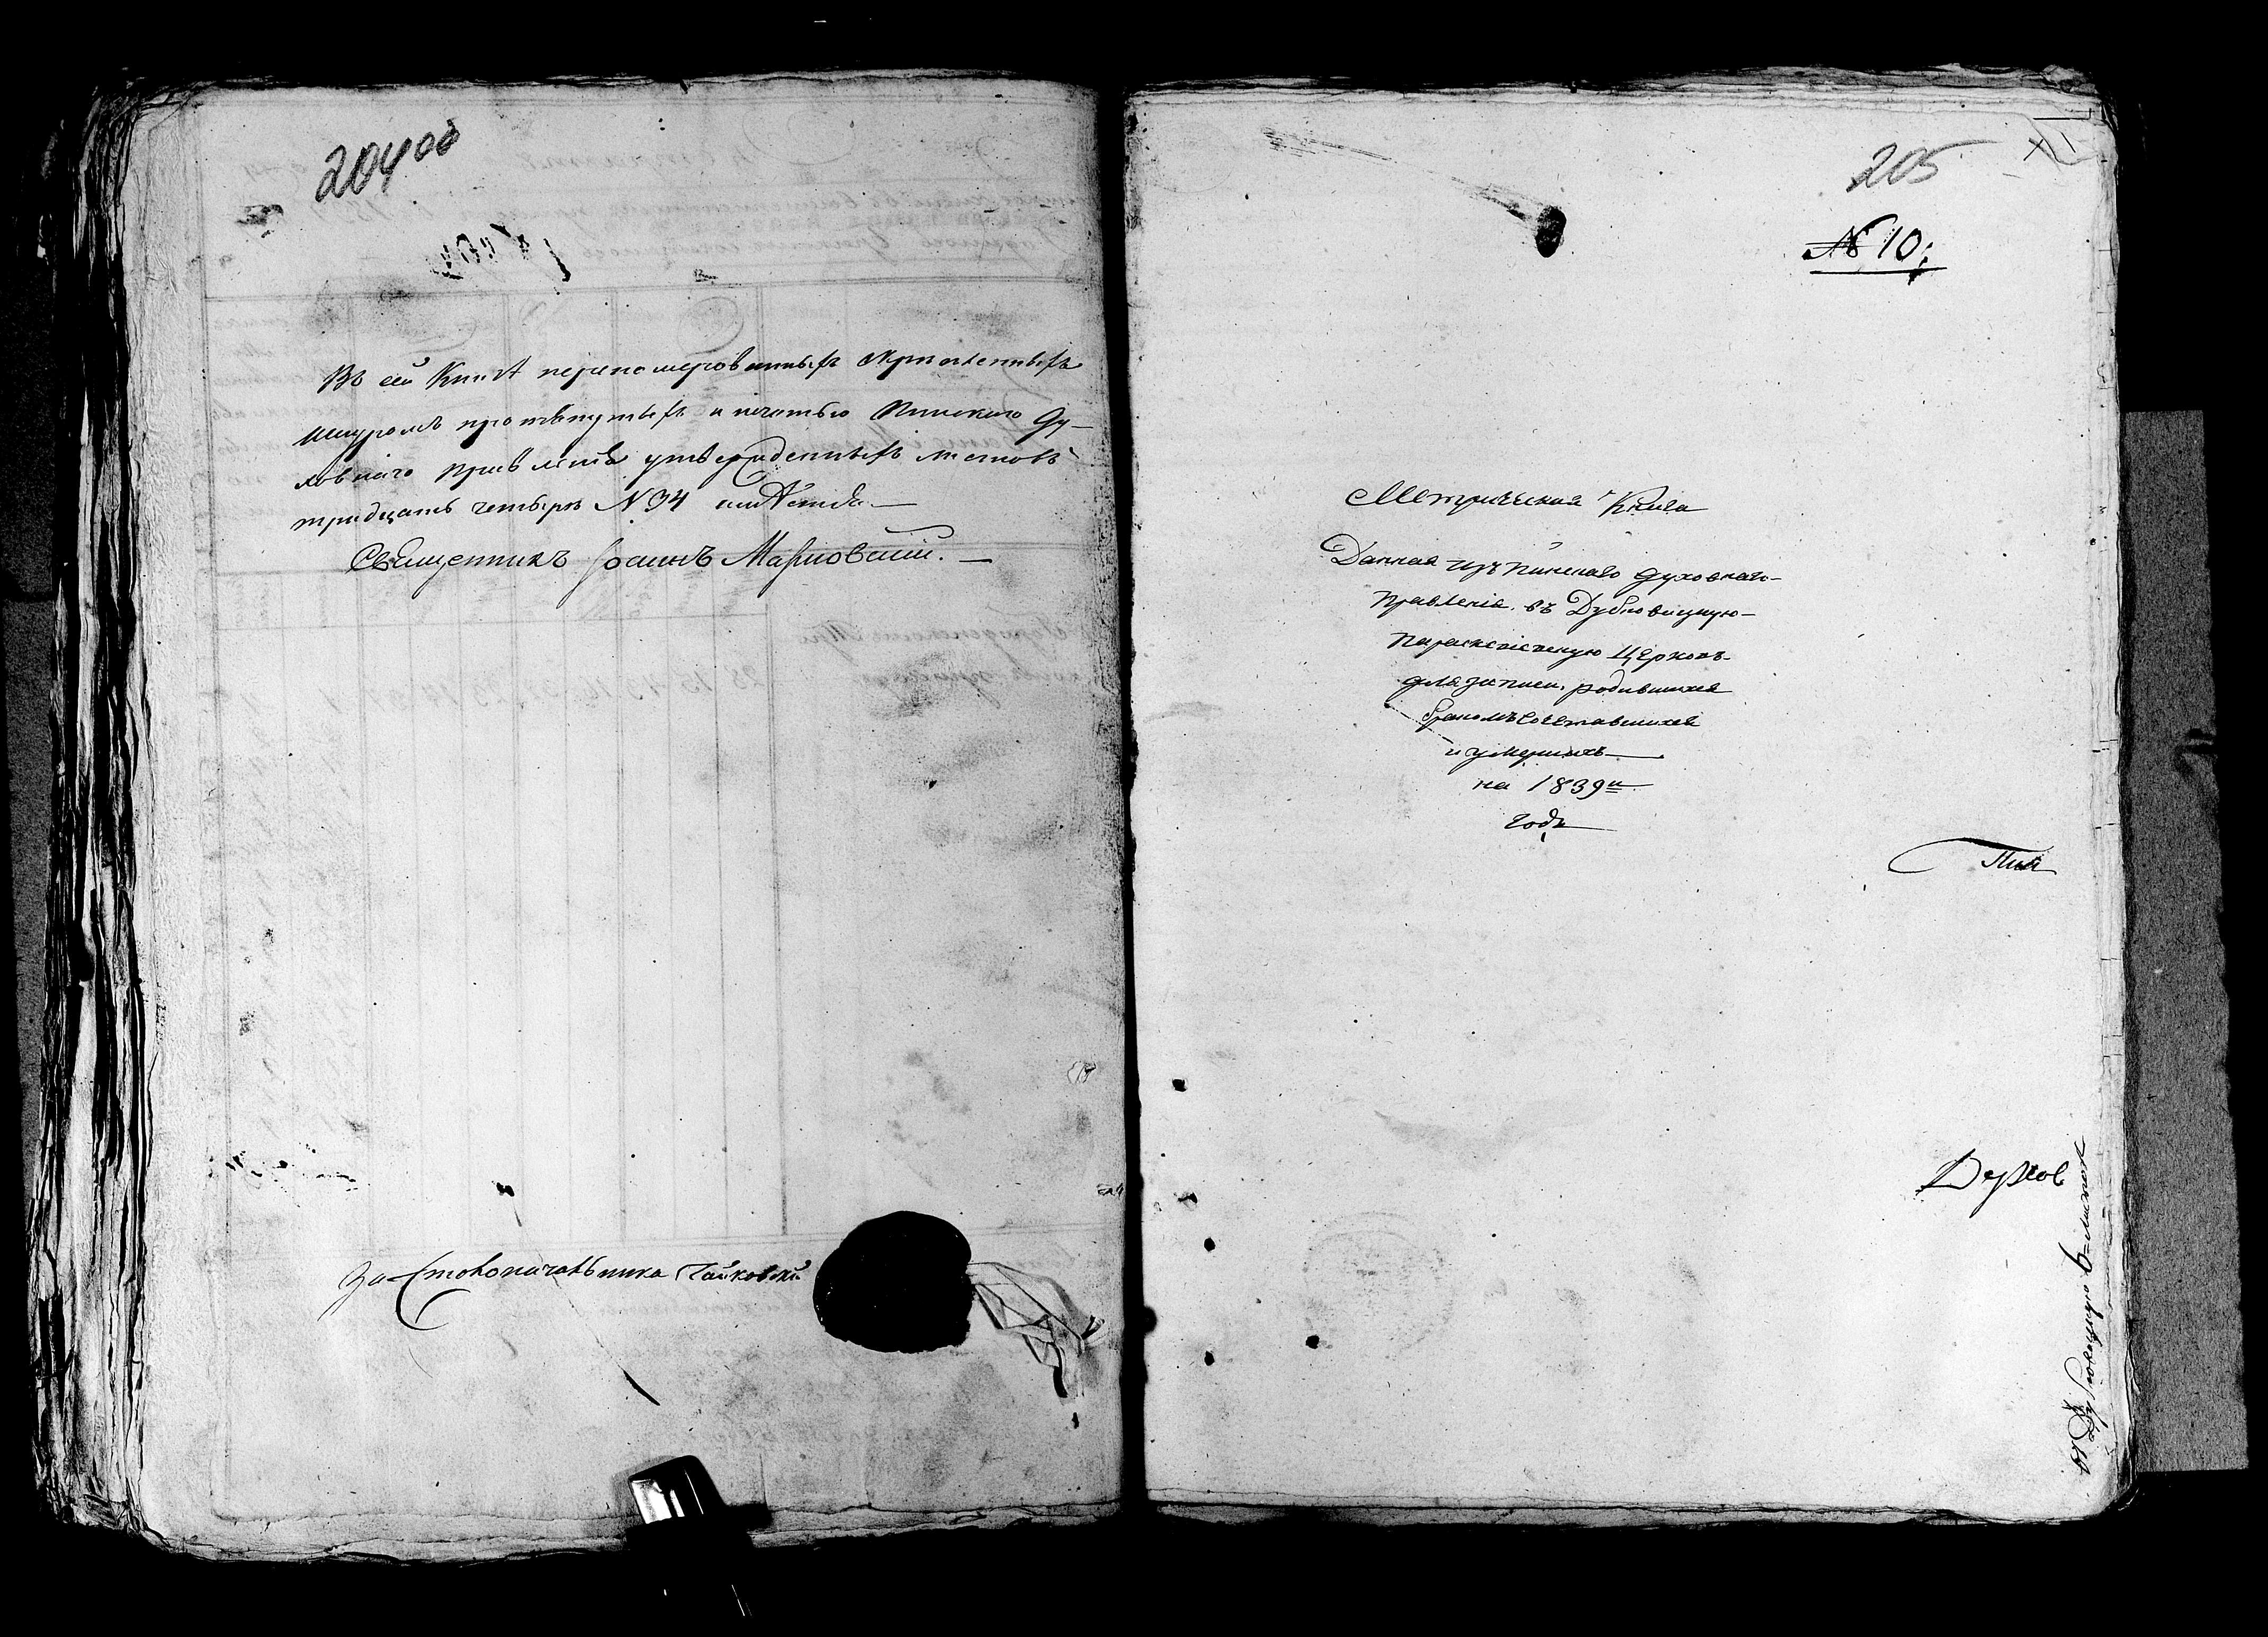 204 об
Въ сей Книгѣ переномерованныхъ скрепленныхъ
шнуромъ протянутыхъ и печатью Пинскаго Ду-
ховнаго Правленія утвержденныхъ листовъ
тридцать четыре N 34 имѣется.—
Священникъ Іоаннъ —
За Столоначальника Чайковскій
205
№ 10.
Метрическая Книга
Данная изъ Пинскаго Духовнаго
Правленія въ Дубновицкую
Параскевіевскую Церковь
для записи родившихся
бракомъ сочетавшихся
и умершихъ
на 1839й
Годъ
Пин
Церков